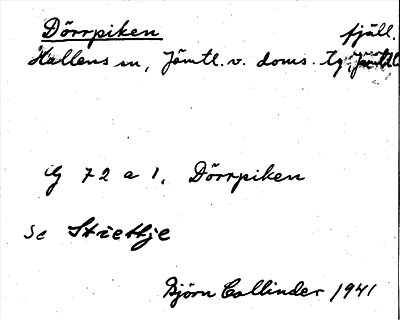 Dörrpiken fjäll.
Hallens sn, Jämtl. v. doms. tg, Jämtl.
G 72 a 1, Dörrpiken
se Strettje
Björn Collinder 1941